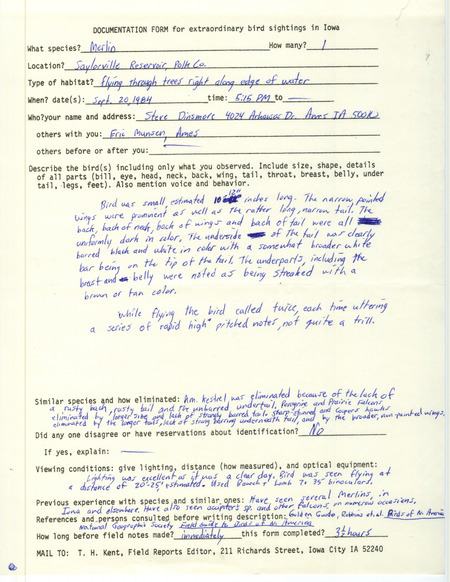 DOCUMENTATION FORM for extraordinary bird sightings in Iowa
What species? Merlin How many? 1
Location? Saylorville Reservoir, Polk Co.
Type of habitat? flying through trees right along edge of water
When? date(s): Sept. 20, 1984 time: 5:15 PM to —
Who? your name and address: Steve Dinsmore 4024 Arkansas Dr. Ames IA 50010
others with you: Eric Munson, Ames
others before or after you:
Describe the bird(s) including only what you observed. Include size, shape, details
of all parts (bill, eye, head, neck, back, wing, tail, throat, breast, belly, under
tail, legs, feet). Also mention voice and behavior.
Bird was small, estimated 10-12" inches long. The narrow, pointed
wings were prominent as well as the rather long, narrow tail. The
back, back of neck, back of wings and back of tail were all
uniformly dark in color. The underside of the tail was clearly
barred black and white in color with a somewhat broader white
bar being on the tip of the tail. The underparts, including the
breast and belly were noted as being streaked with a
brown or tan color.
While flying the bird called twice, each time uttering
a series of rapid high pitched notes, not quite a trill.
Similar species and how eliminated: Am. Kestrel was eliminated because of the lack of
a rusty back, rusty tail and the unbarred undertail, Peregrine and Prairie Falcons
eliminated by larger size and lack of strongly barred tail. Sharp-shinned and Coopers hawks
eliminated by the longer tail, lack of strong barring underneath tail, and by the broader, non pointed wings.
Did any one disagree or have reservations about identification? No
If yes, explain: —
Viewing conditions: give lighting, distance (how measured), and optical equipment:
Lighting was excellent as it was a clear day. Bird was seen flying at
a distance of 20-25' estimated. Used Bausch + Lomb 7x35 binoculars.
Previous experience with species and similar ones: Have seen several Merlins, in
Iowa and elsewhere. Have also seen accipiters sp. and other falcons, on numerous occasions.
References and persons consulted before writing description: Golden Guide, Robbins et al. Birds of N. America
National Geographic Society Field Guide to Birds of N. America
How long before field notes made? immediately this form completed? 3½ hours
MAIL TO: T. H. Kent, Field Reports Editor, 211 Richards Street, Iowa City IA 52240